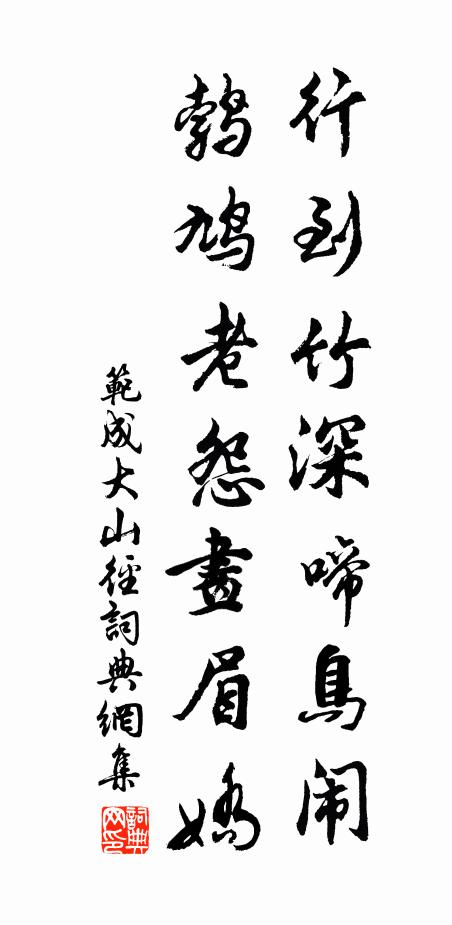 行到竹深啼鳥闹
鵓鳩老怨畫眉嬌
範成大山徑詞典網集
詞典网印